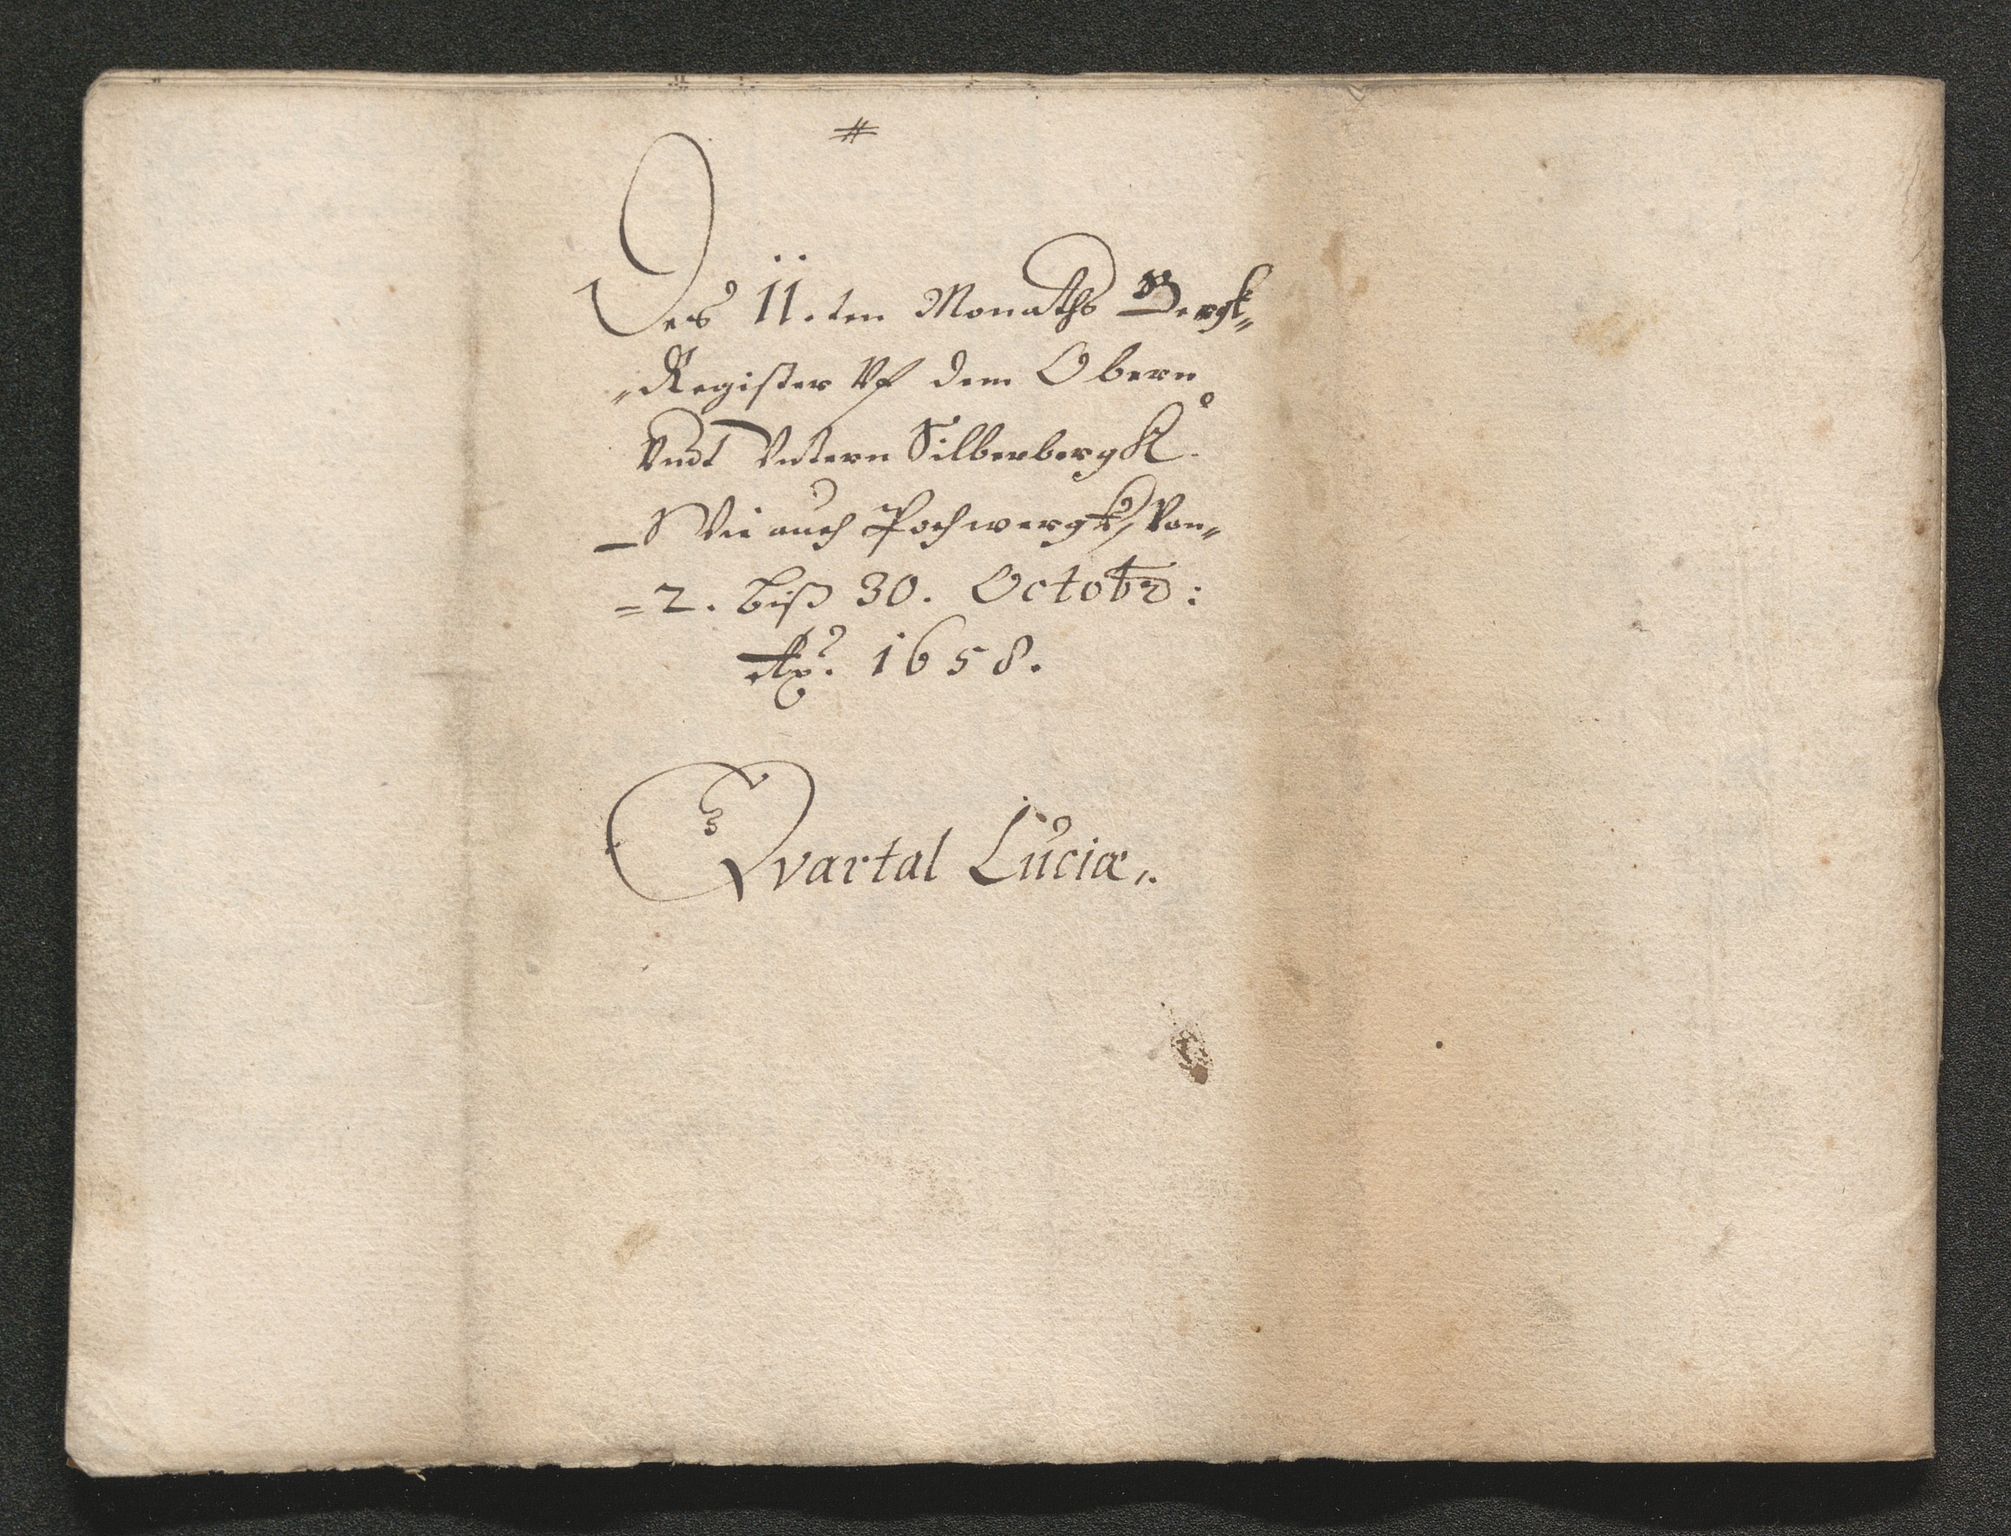 #
Des 11.ten Monaths Bergk-
-Register Vf dem Obern
Vndt Vntern Silbergergk.
Wie auch Pochwergk, Von-
=2. biß 30. Octobr:
Ao. 1658.
Qvartal Luciæ.